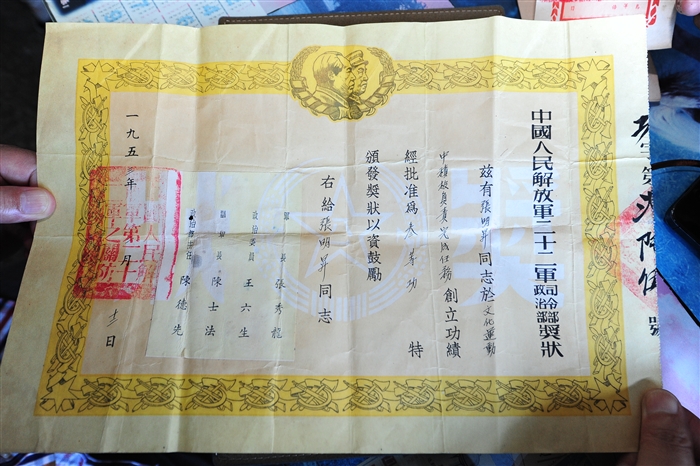 中國人民解放軍二十二軍司令部政治部獎狀
茲有張明昇同志於文化運動
中積極負責完成任務創立功績
經批准為叁等功特
頒發獎狀以資鼓勵
右給張明昇同志
軍長張秀龍
政治委員王六生
副軍長陳士法
政治部主任陳德先
一九五三年一月十二日
號
獎